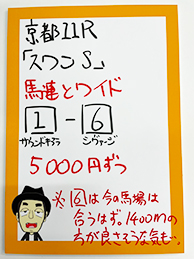 京都11R
「スワンS」
馬連とワイド
1-6
サウンドキアラ シヴァージ
5000円ずつ
※6は今の馬場は
合うはず。1400mの
方が良さそうな気も…